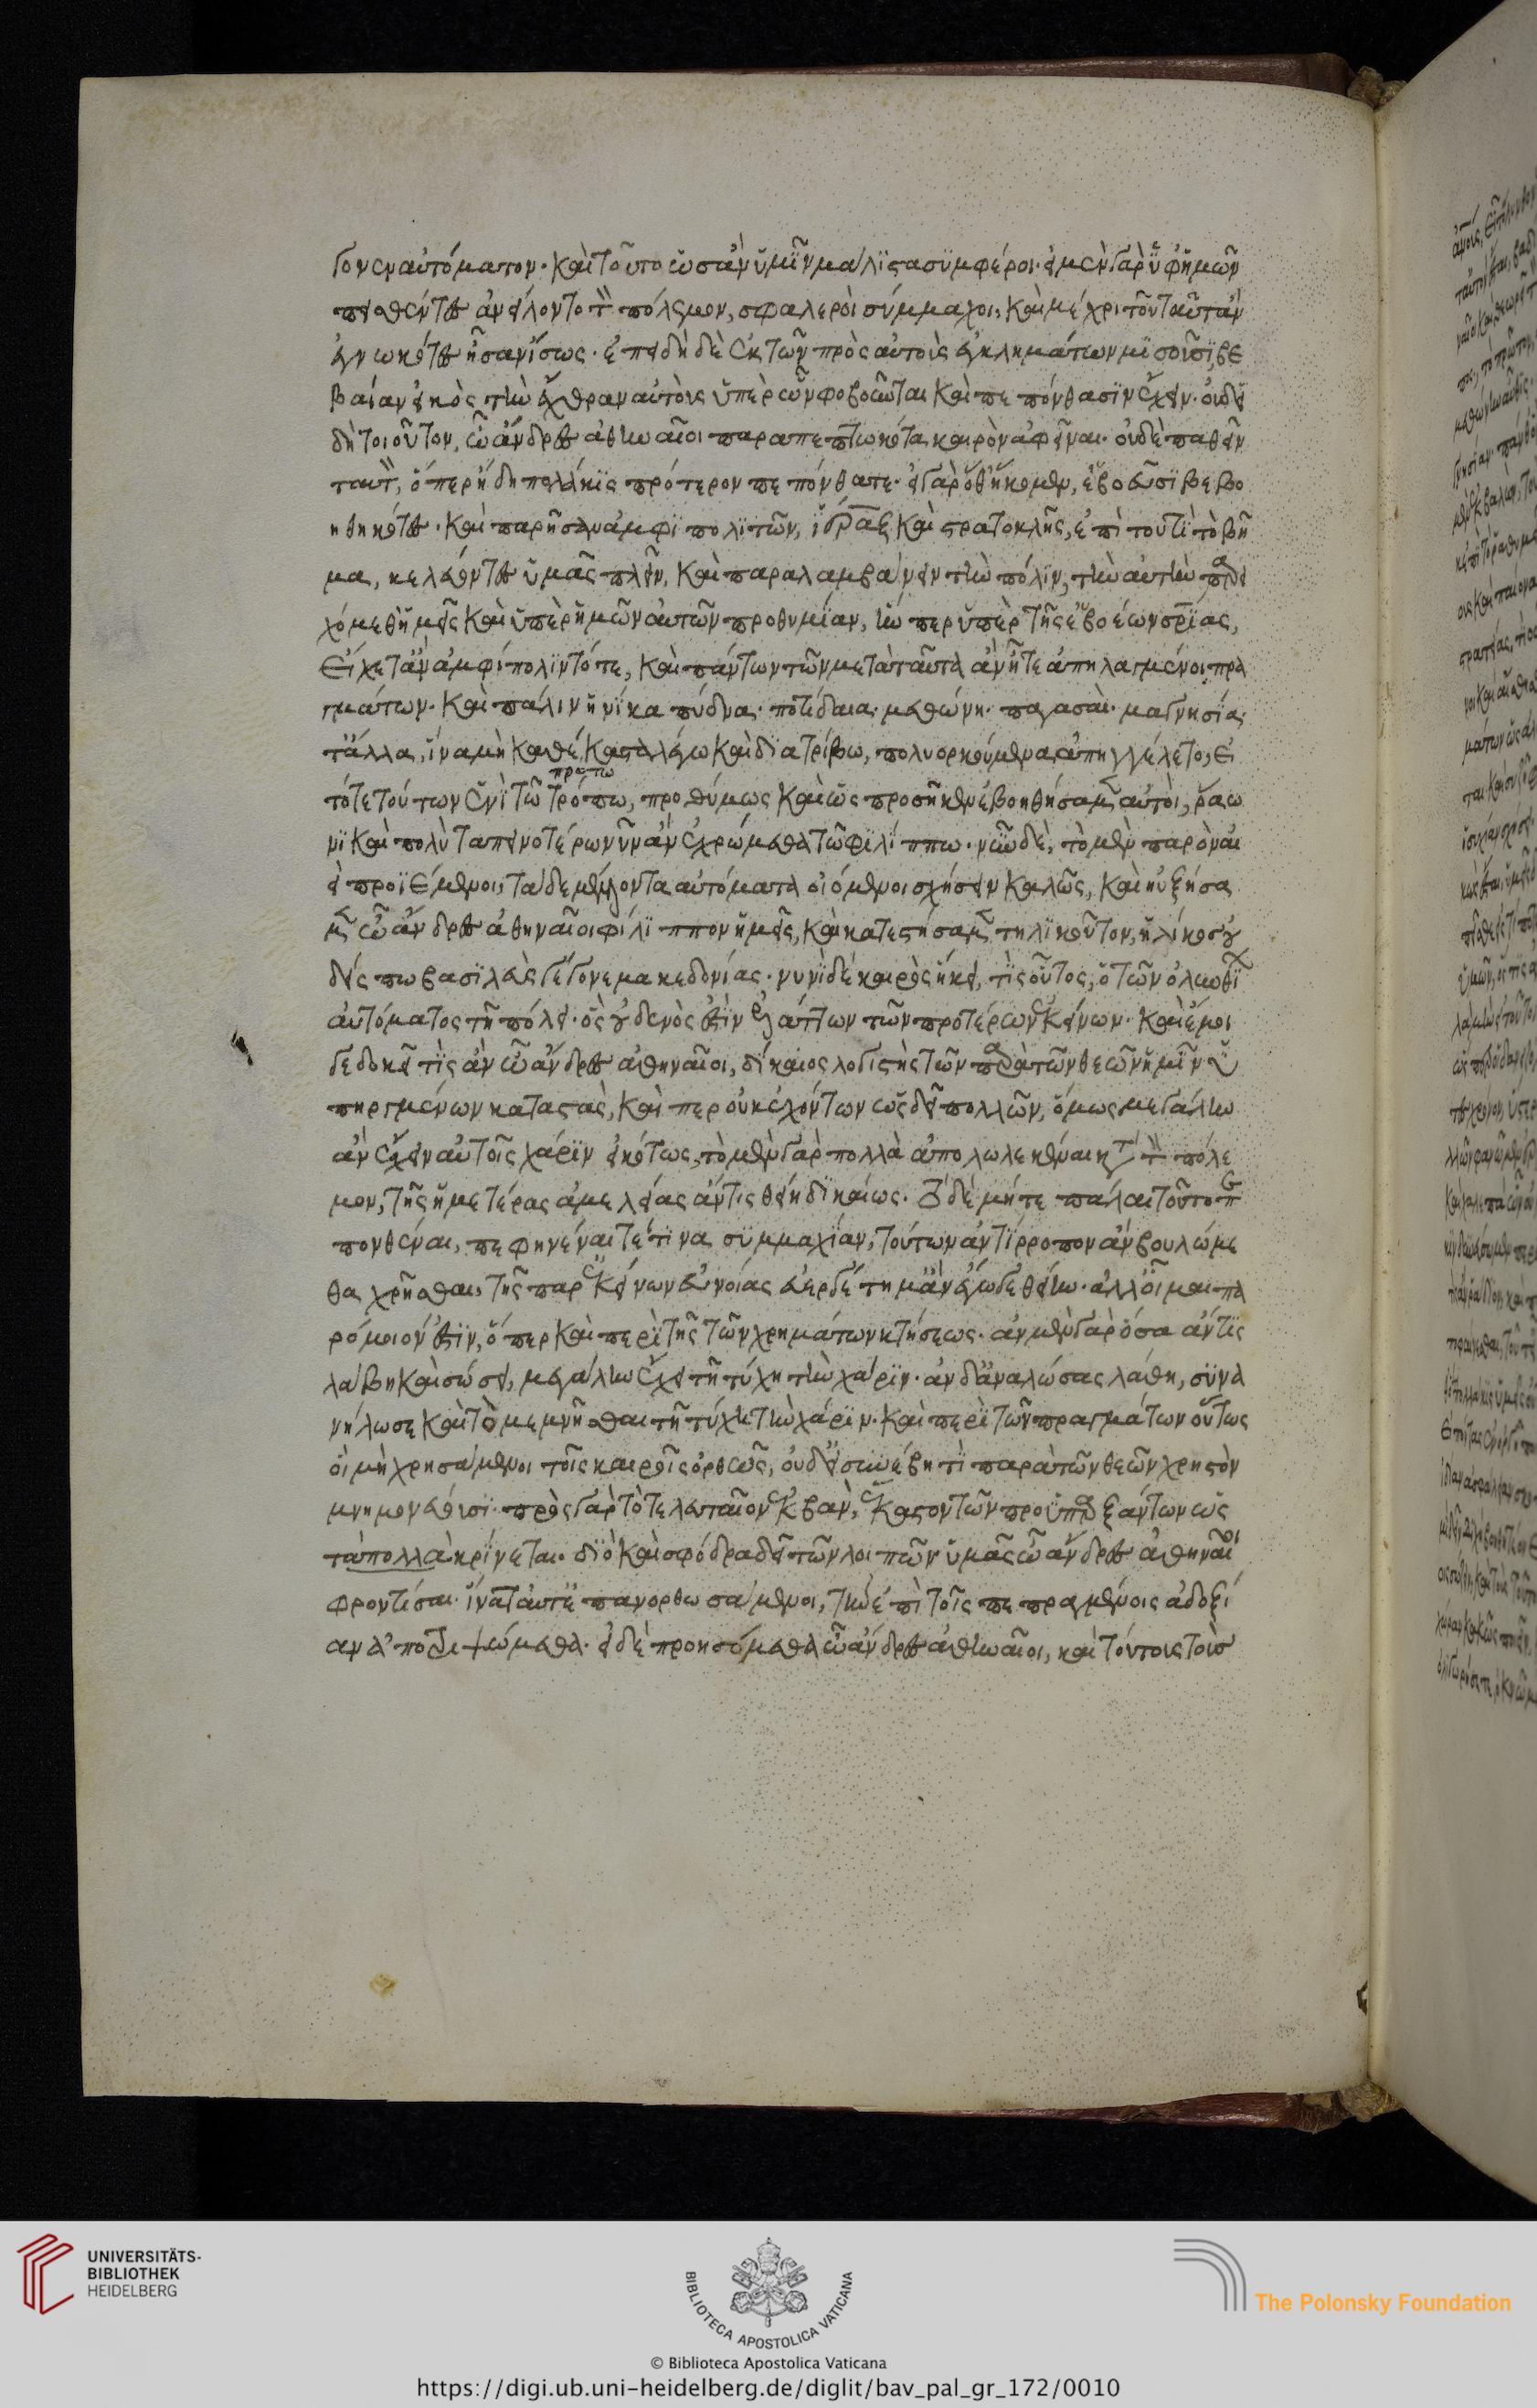 γονεν αὐτόματον. καὶ τοῦθ' ὡς ἂν ὑμῖν μάλιστα συμφέροι. εἰ μὲν γὰρ ὑφ' ἡμῶν
πεισθέντες ἀνείλοντο τὸν πόλεμον, σφαλεροὶ σύμμαχοι, καὶ μέχρι του ταῦτ' ἂν
ἐγνωκότες ἦσαν ἴσως. ἐπειδὴ δὲ ἐκ τῶν πρὸς αὐτοὺς ἐγκλημάτων μισοῦσι, βε
βαίαν εἰκὸς τὴν ἔχθραν αὐτοὺς ὑπὲρ ὧν φοβοῦνται καὶ πεπόνθασιν ἔχειν. οὐ δεῖ
δὴ τοιοῦτον, ὦ ἄνδρες ἀθηναῖοι παραπεπτωκότα καιρὸν ἀφεῖναι. οὐδὲ παθεῖν
ταυτὸν, ὅπερ ἤδη πολλάκις πρότερον πεπόνθατε. εἰ γὰρ ὅθ' ἥκομεν, εὐβοεῦσι βεβο
ηθηκότες. καὶ παρῆσαν ἀμφιπολιτῶν, ἱέραξ καὶ στρατοκλῆς, ἐπὶ τουτὶ τὸ βῆ
μα, κελεύοντες ὑμᾶς πλεῖν, καὶ παραλαμβάνειν τὴν πόλιν, τὴν αὐτὴν παρει
χόμεθ' ἡμεῖς καὶ ὑπὲρ ἡμῶν αὐτῶν προθυμίαν, ἥνπερ ὑπὲρ τῆς εὐβοέων σρίας,
εἴχετ' ἂν ἀμφίπολιν τότε, καὶ πάντων τῶν μετὰ ταῦτα ἂν ἦτε ἀπηλαγμένοι πρα
γμάτων. καὶ πάλιν ἡνίκα πύδνα. ποτίδαια. μεθώνη. παγασαὶ. μαγνησία.
τἄλλα, ἵνα μὴ καθέκαστα λέγω καὶ διατρίβω, πολιορκούμενα ἀπηγγέλετο, εἰ
τότε τούτων ἑνὶ τῷ τρόπω, προθύμως καὶ ὡς προσῆκεν ἐβοηθήσαμεν αὐτοὶ, ῥάω
πρώτω
νι καὶ πολὺ ταπεινοτέρω νῦν ἂν ἐχρώμεθα τῷ φιλίππω. νῦν δὲ, τὸ μὲν παρὸν ἀε
ὶ προϊέμενοι, τὰ δὲ μέλλοντα αὐτόματα οἰόμενοι σχήσειν καλῶς, καὶ ηὐξήσα
μεν ὦ ἄνδρες ἀθηναῖοι φίλιππον ἡμεῖς, καὶ κατεστήσαμεν τηλικοῦτον, ἡλίκος οὐ
δείς πω βασιλεὺς γέγονε μακεδονίας. νυνὶ δὲ καιρὸς ἥκει, τίς οὗτος, ὁ τῶν ὀλυνθίων
αὐτόματος τῇ πόλει. ὃς οὐδενός ἐστιν ἐλάττων τῶν προτέρων ἐκείνων. καὶ ἔμοι
γε δοκεῖ τὶς ἂν ὦ ἄνδρες ἀθηναῖοι, δίκαιος λογιστὴς τῶν παρὰ τῶν θεῶν ἡμῖν ὑ
πηργμένων καταστὰς, καίπερ οὐκ ἐχόντων ὡς δεῖ πολλῶν, ὅμως μεγάλην
ἂν ἔχειν αὐτοῖς χάριν εἰκότως, τὸ μὲν γὰρ πολλὰ ἀπολωλεκέναι κατὰ τὸν πόλε
μον, τῆς ἡμετέρας ἀμελείας ἄν τις θείη δικαίως. τὸ δὲ μήτε πάλαι τοῦτο πε
πονθέναι, πεφηνέναι τέ τινα συμμαχίαν, τούτων ἀντίρροπον ἂν βουλώμε
θα χρῆσθαι, τῆς παρ' ἐκείνων εὐνοίας εὐεργέτημ' ἂν ἔγωγε θείην. ἀλλ' οἶμαι πα
ρόμοιόν ἐστιν, ὅπερ καὶ περὶ τῆς τῶν χρημάτων κτήσεως. ἂν μὲν γὰρ ὅσα ἄν τις
λάβη καὶ σώσει, μεγάλην ἔχει τῇ τύχη τὴν χάριν. ἂν δ' ἀναλώσας λάθη, συνα
νήλωσε καὶ τὸ μεμνῆσθαι τῇ τύχη τὴν χάριν. καὶ περὶ τῶν πραγμάτων οὕτως
οἱ μὴ χρησάμενοι τοῖς καιροῖς ὀρθῶς, οὐδ' εἰ συνέβη τὶ παρὰ τῶν θεῶν χρηστὸν
μνημονεύουσι. πρὸς γὰρ τὸ τελευταῖον ἐκβὰν, ἕκαστον τῶν προϋπαρξάντων ὡς
τὰ πολλὰ κρίνεται. διὸ καὶ σφόδρα δεῖ τῶν λοιπῶν ὑμᾶς ὦ ἄνδρες ἀθηναῖοι
φροντίσαι. ἵνα ταῦτ' ἐπανορθωσάμενοι, τὴν ἐπὶ τοῖς πεπραγμένοις ἀδοξί
αν ἀποτριψώμεθα. εἰ δὲ προησόμεθα ὦ ἄνδρες ἀθηναῖοι, καὶ τούτους τοὺς
UNIVERSITÄTS-
BIBLIOTHEK
HEIDELBERG
BIBLIOTECA APOSTOLICA VATICANA
The Polonsky Foundation
© Biblioteca Apostolica Vaticana
https://digi.ub.uni-heidelberg.de/diglit/bav_pal_gr_172/0010